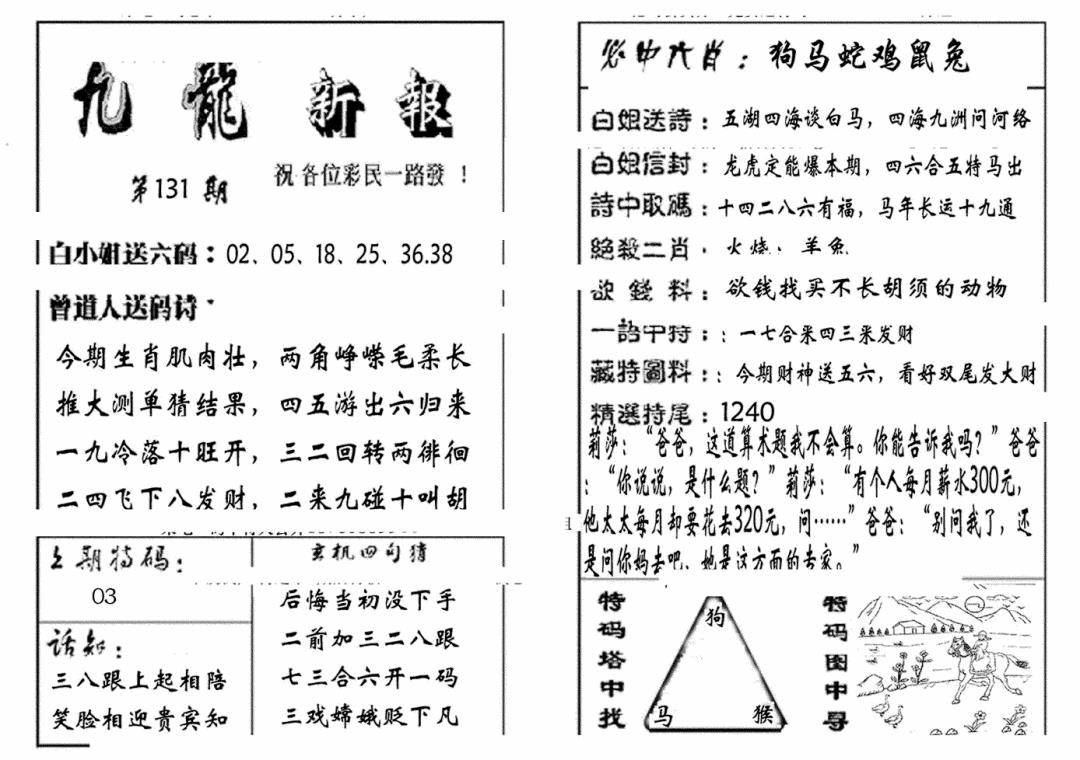 九龍新報
第131期
祝各位彩民一路發！
白小姐送六码：02、05、18、25、36.38
曾道人送码诗
今期生肖肌肉壮，两角峥嵘毛柔长
推大测单猜结果，四五游出六归来
一九冷落十旺开，三二回转两徘徊
二四飞下八发财，二来九碰十叫胡
上期特码：
03
话知：
三八跟上起相陪
笑脸相迎贵宾知
玄机四句猜
后悔当初没下手
二前加三二八跟
七三合六开一码
三戏嫦娥贬下凡
必中六肖：狗马蛇鸡鼠兔
白姐送詩：五湖四海谈白马，四海九洲问河络
白姐信封：龙虎定能爆本期，四六合五特马出
詩中取碼：十四二八六有福，马年长运十九通
絕殺二肖．火烧：羊兔
欲錢料：欲钱找买不长胡须的动物
一語中特：：一七合来四三来发财
藏特圖料：：今期财神送五六，看好双尾发大财
精選特尾：1240
莉莎：“爸爸，这道算术题我不会算。你能告诉我吗？”爸爸
：“你说说，是什么题？”莉莎：“有个人每月薪水300元，
他太太每月却要花去320元，问……”爸爸：“别问我了，还
是问你妈去吧，她是这方面的专家。”
特码塔中找
狗
马
猴
特码图中寻